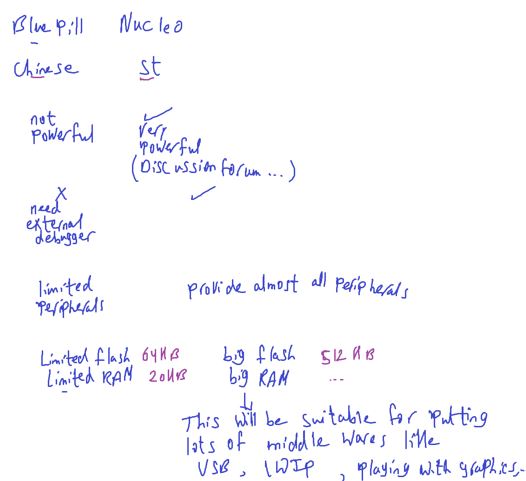 Blue pill Nucleo
Chinese ST
not
powerful
very
powerful
(Discussion forum ...)
need
external
debugger
limited
peripherals
provide almost all peripherals
Limited flash 64KB big flash 512KB
Limited RAM 20KB big RAM ...
This will be suitable for putting
lots of middle wares like
USB, LWIP, playing with graphics,..